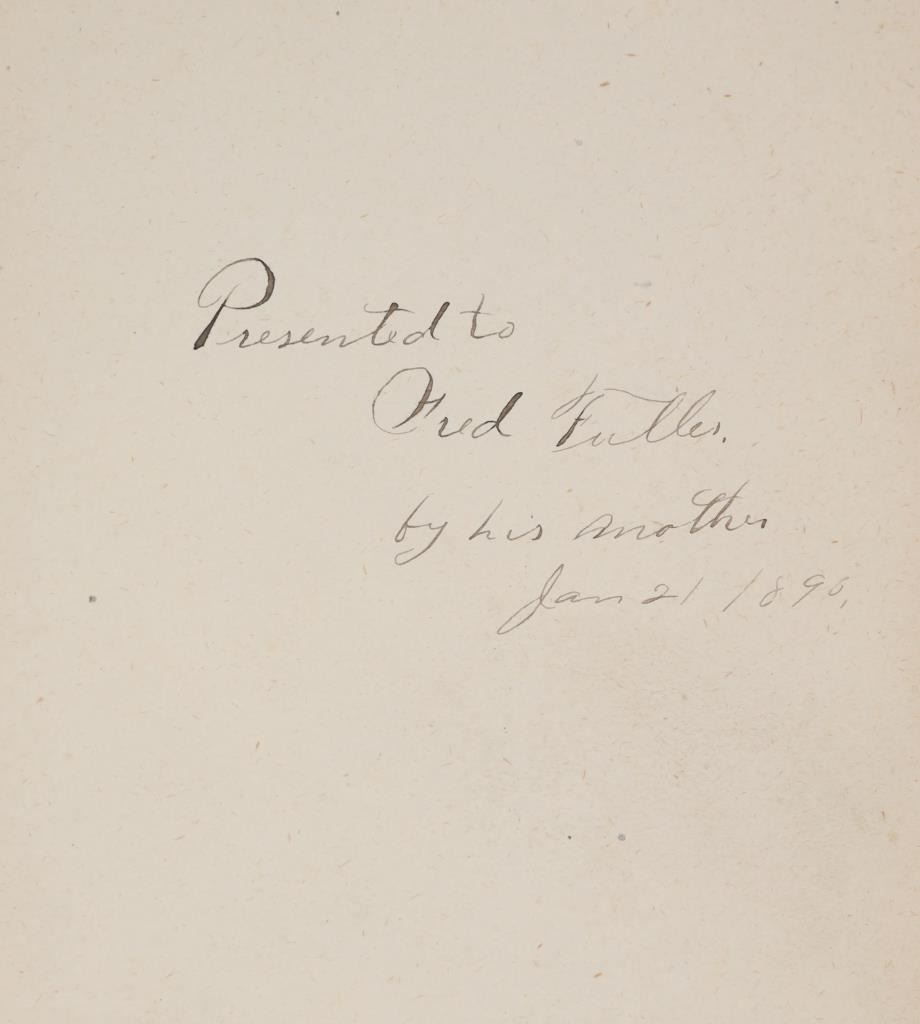 Presented to
Fred Fuller.
by his mother
Jan 21 1890.